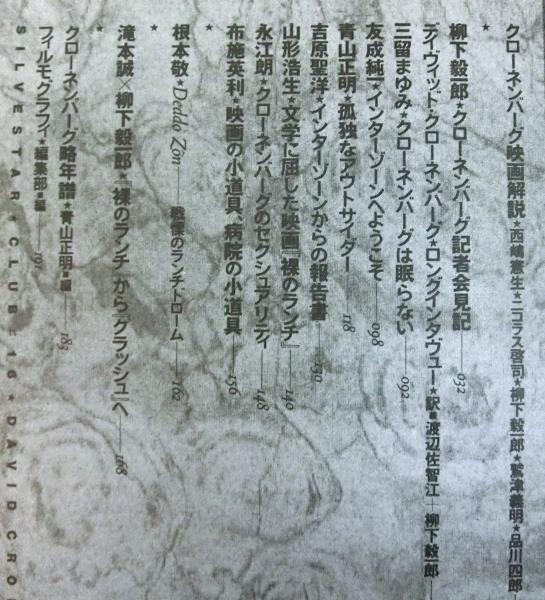 クローネンバーグ映画解説★西嶋憲生★ニコラス啓司★柳下毅一郎★鷲津義明★品川四郎
★
柳下毅一郎★クローネンバーグ記者会見記——032
デイヴィッド・クローネンバーグ★ロングインタヴュー★訳■渡辺佐智江＋柳下毅一郎
三留まゆみ★クローネンバーグは眠らない——092
友成純一★インターゾーンへようこそ——098
青山正明★孤独なアウトサイダー——118
吉原聖洋★インターゾーンからの報告書——130
山形浩生★文学に屈した映画『裸のランチ』——140
永江朗★クローネンバーグのセクシュアリティ——148
布施英利★映画の小道具、病院の小道具——156
★
根本敬★Deddo Zôn——戦慄のランチトローム——162
★
滝本誠×柳下毅一郎★『裸のランチ』から『クラッシュ』へ——168
★
クローネンバーグ略年譜★青山正明■編——183
フィルモグラフィ★編集部■編——191
SILVESTAR★CLUB 16★DAVID CRO